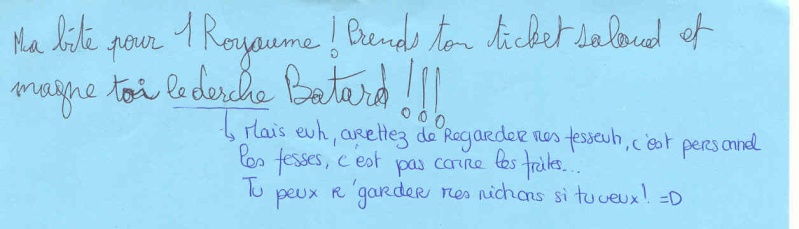 Ma bite pour 1 Royaume ! Prends ton ticket salaud et
magne toi le derche Batard !!!
↳ Mais euh, arettez de Regarder mes fesseuh, c'est personnel
les fesses, c'est pas comme les frites...
Tu peux r'garder mes nichons si tu veux ! =D